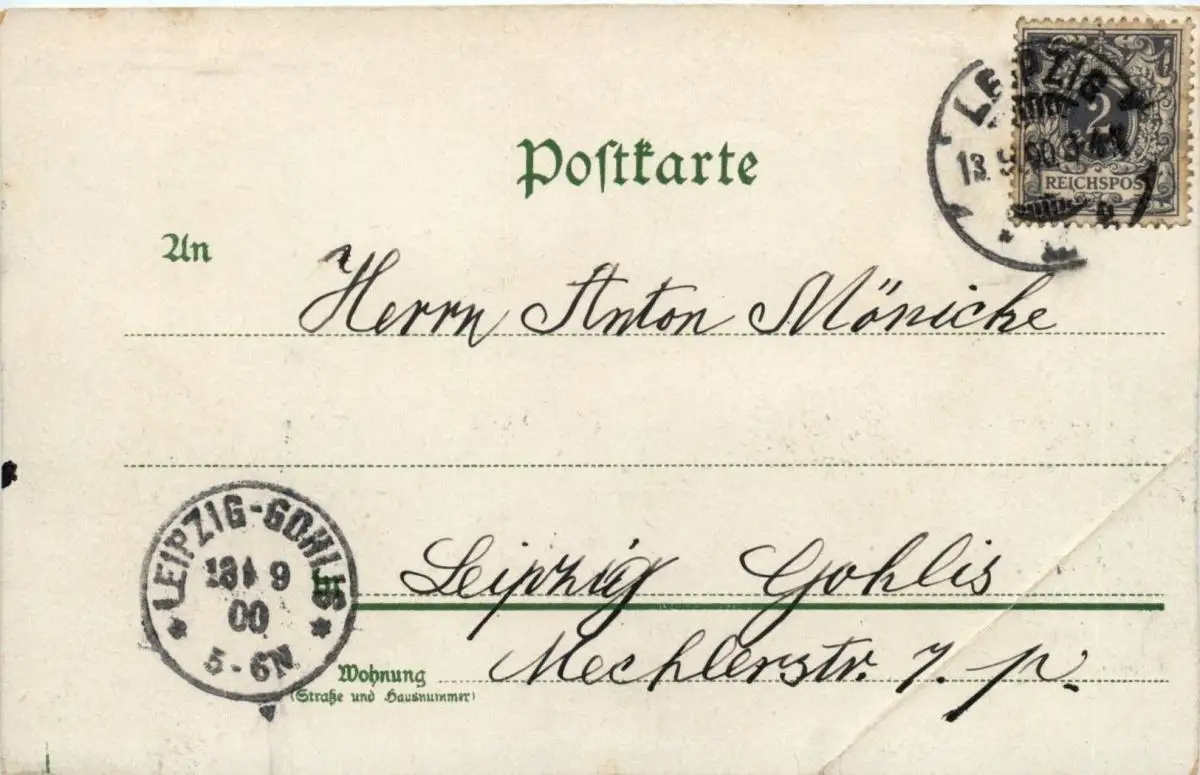 Postkarte
LEIPZIG
13. 9. 00. 3-4N
2
REICHSPOST
An
Herrn Anton Mönicke
LEIPZIG-GOHLIS
13 9
00
5-6N
in
Leipzig Gohlis
Wohnung
(Straße und Hausnummer)
Mechlerstr. 7. p.